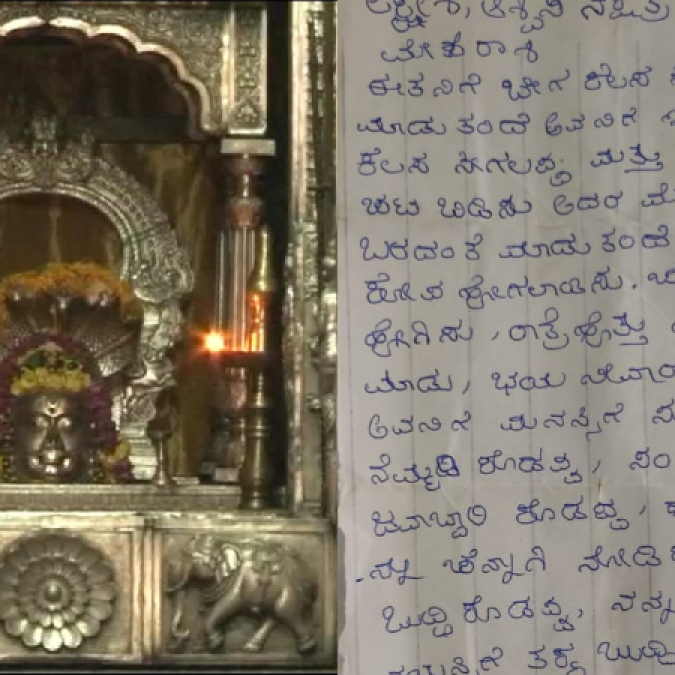 ಲಕ್ಷ್ಮೀಶ, ಅಶ್ವಿನಿ ನಕ್ಷತ್ರ
ಮೇಶ ರಾಶಿ
ಈತನಿಗೆ ಬೇಗ ಕೆಲಸ
ಮಾಡು ತಂದೆ ಅವನಿಗೆ
ಕೆಲಸ ಸಿಗಲಪ್ಪ ಮತ್ತು
ಚಟ ಬಿಡಿಸು ಅದರ
ಬರದಂತೆ ಮಾಡು ತಂದೆ
ಕೋಪ ಹೋಗಲಾಡಿಸು.
ಹೋಗಿಸು, ರಾತ್ರಿಹೊತ್ತು
ಮಾಡು, ಭಯ
ಅವನಿಗೆ ಮನಸ್ಸಿಗೆ
ನೆಮ್ಮದಿ ಕೊಡಪ್ಪ,
ಜವಾಬ್ದಾರಿ ಕೊಡಪ್ಪ,
ನ್ನು ಚೆನ್ನಾಗಿ
ಬುದ್ಧಿ ಕೊಡಪ್ಪ, ನನ್ನ
ತಕ್ಕ ಬುದ್ಧಿ